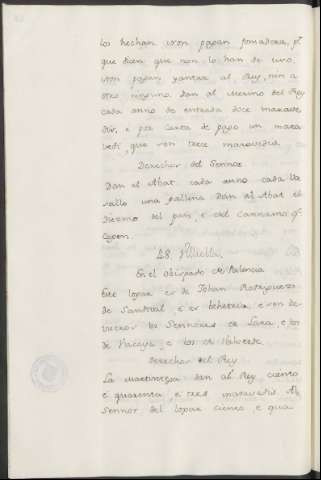 los hechan non pagan fonsadera, pr
que dicen que non lo han de uso.
non pagan yantar al Rey, nin a
otro ninguno. Dan al Merino del Rey
cada anno de entrada doce maravedis
e por carta de pago un mara
vedi, que son trece maravedis.
Derechos del Sennor
Dan al Abat cada anno cada Va
sallo una gallina. Dan al Abat el
Diezmo del pan e del cannamo qe
cogen.
48.
En el obispado de Palencia
Este logar es de Johan Rodriguez
de Sandoval e es behetria, e son de
viseros los Sennores de Lara, e los
de Vizcaya, e los de
Derechos del Rey
La martiniega dan al Rey ciento
e quarenta e tres maravedis. Al
Sennor del logar ciento e qua